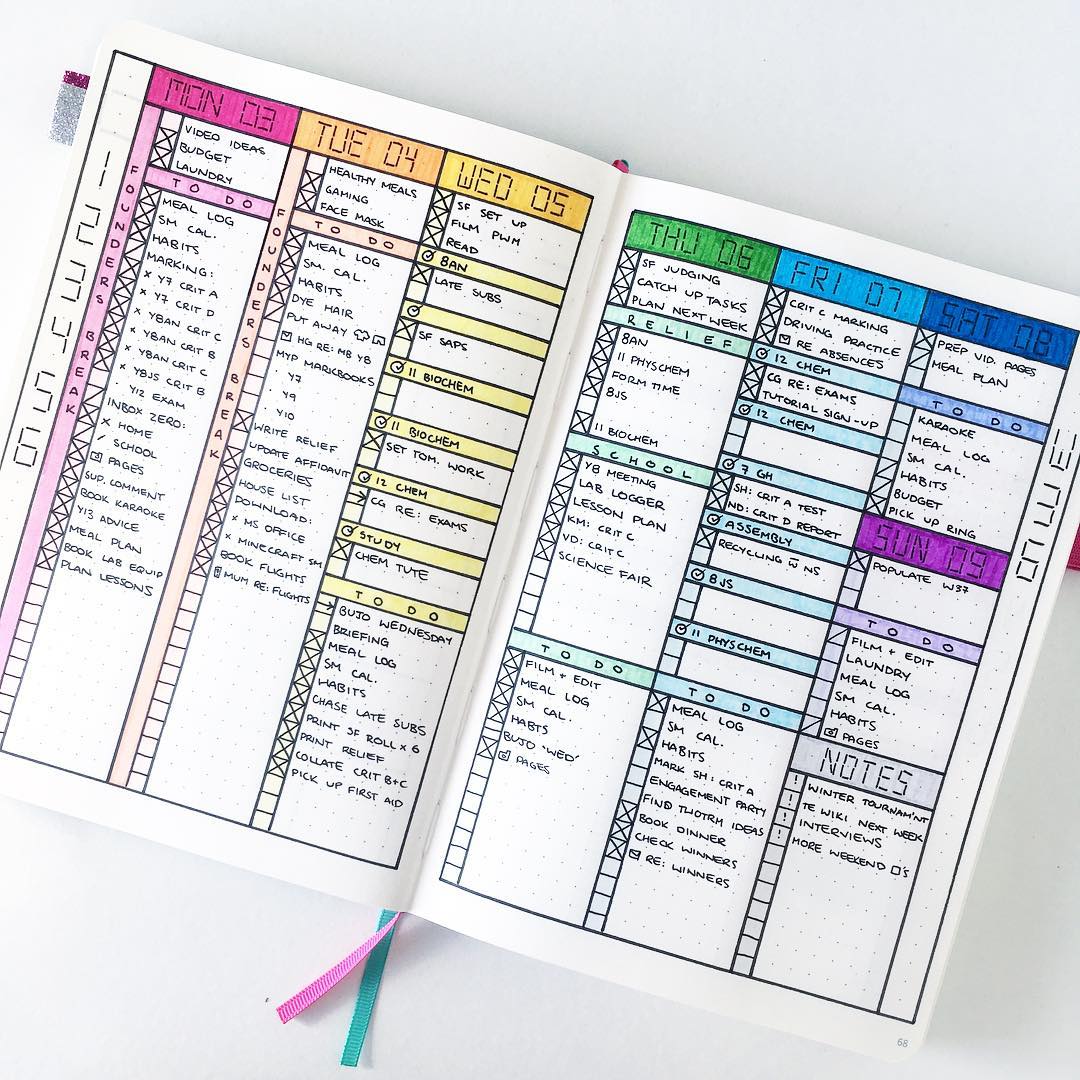 1 2 3 4 5 6
MON 03
VIDEO IDEAS
BUDGET
LAUNDRY
FOUNDERS BREAK
TO DO
MEAL LOG
SM CAL.
HABITS
MARKING:
x Y7 CRIT A
x Y7 CRIT D
x YBAN CRIT C
x YBAN CRIT B
x YBAN CRIT C
x YBJS CRIT B
Y12 EXAM
INBOX ZERO:
x HOME
SCHOOL
PAGES
SUP. COMMENT
BOOK KARAOKE
Y13 ADVICE
MEAL PLAN
BOOK LAB EQUIP
PLAN LESSONS
TUE 04
HEALTHY MEALS
GAMING
FACE MASK
FOUNDERS BREAK
TO DO
MEAL LOG
SM. CAL.
HABITS
DYE HAIR
PUT AWAY
HG RE: MB Y8
MYP MARKBOOKS
Y7
Y9
Y10
WRITE RELIEF
UPDATE AFFIDAVIT
GROCERIES
HOUSE LIST
DOWNLOAD:
x MS OFFICE
x MINECRAFT SM
BOOK FLIGHTS
MUM RE: FLIGHTS
WED 05
SF SET UP
FILM PWM
READ
8AN
LATE SUBS
SF SAPS
11 BIOCHEM
11 BIOCHEM
SET TOM. WORK
12 CHEM
CG RE: EXAMS
STUDY
CHEM TUTE
TO DO
BUJO WEDNESDAY
BRIEFING
MEAL LOG
SM CAL.
HABITS
CHASE LATE SUBS
PRINT SF ROLL x 6
PRINT RELIEF
COLLATE CRIT B+C
PICK UP FIRST AID
THU 06
SF JUDGING
CATCH UP TASKS
PLAN NEXT WEEK
RELIEF
8AN
11 PHYSCHEM
FORM TIME
8JS
11 BIOCHEM
SCHOOL
Y8 MEETING
LAB LOGGER
LESSON PLAN
KM: CRIT C
VD: CRIT C
SCIENCE FAIR
TO DO
FILM + EDIT
MEAL LOG
SM CAL.
HABTS
BUJO 'WED'
PAGES
FRI 07
CRIT C MARKING
DRIVING PRACTICE
RE ABSENCES
12 CHEM
CG RE: EXAMS
TUTORIAL SIGN-UP
12 CHEM
7 GH
SH: CRIT A TEST
ND: CRIT D REPORT
ASSEMBLY
RECYCLING W NS
8JS
11 PHYSCHEM
TO DO
MEAL LOG
SM CAL.
HABITS
MARK SH: CRIT A
ENGAGEMENT PARTY
FIND THOTRM IDEAS
BOOK DINNER
CHECK WINNERS
RE: WINNERS
SAT 08
PREP VID. PAGES
MEAL PLAN
TO DO
KARAOKE
MEAL LOG
SM CAL.
HABITS
BUDGET
PICK UP RING
SUN 09
POPULATE W37
TO DO
FILM + EDIT
LAUNDRY
MEAL LOG
SM CAL.
HABITS
PAGES
NOTES
! WINTER TOURNAM'NT
! TE WIKI NEXT WEEK
! INTERVIEWS
! MORE WEEKEND □'S
68